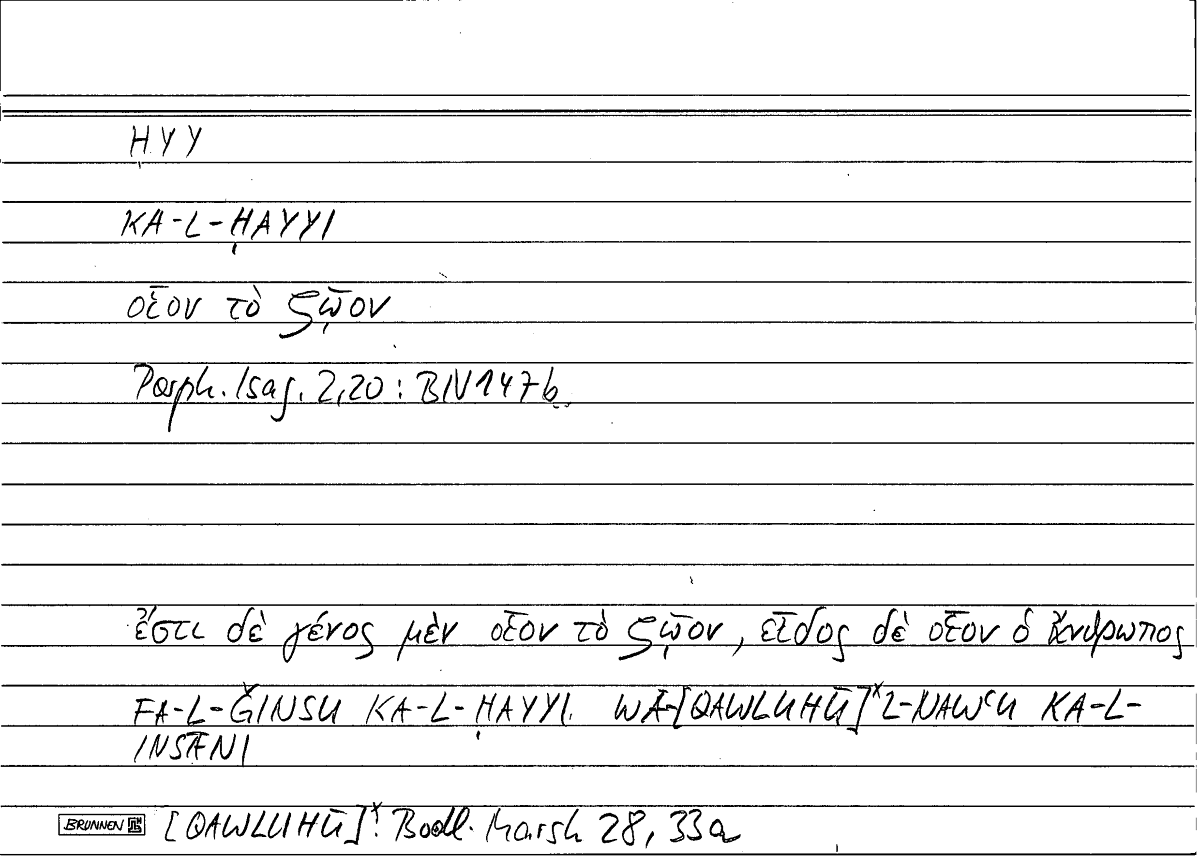 ḤYY
KA-L-ḤAYYI
οἷον τὸ ζῷον
Porph. Isag. 2,20: BN 147b
ἔστι δὲ γένος μὲν οἷον τὸ ζῷον, εἶδος δὲ οἷον ὁ ἄνθρωπος
FA-L-ǦINSU KA-L-ḤAYYI. WA-[QAWLUHŪ]ˣ L-NAWʿU KA-L-
INSĀNI
BRUNNEN [QAWLUHŪ]ˣ: Bodl. Marsh 28, 33a